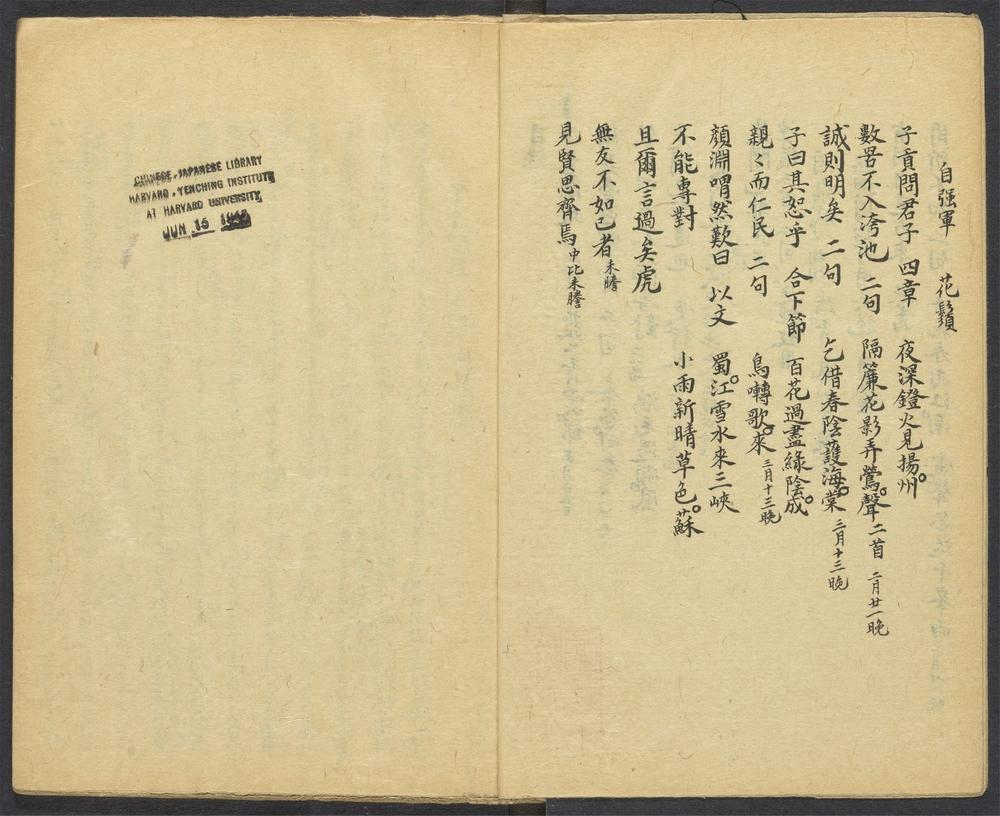 自强軍　花鬚
子貢問君子　四章　夜深鐙火見揚州
數罟不入洿池　二句　隔簾花影弄鶯聲　二首　二月廿一晚
誠則明矣　二句　乞借春陰護海棠　三月十三晚
子曰其恕乎　合下節　百花過盡綠陰成
親〻而仁民　二句　鳥囀歌來　三月十三晚
顏淵喟然歎曰　以文　蜀江雪水來三峽
不能專對　小雨新晴草色蘇
且爾言過矣虎
無友不如己者　未謄
見賢思齊焉　中比未謄
CHINESE-JAPANESE LIBRARY
HARVARD-YENCHING INSTITUTE
AT HARVARD UNIVERSITY
JUN 15